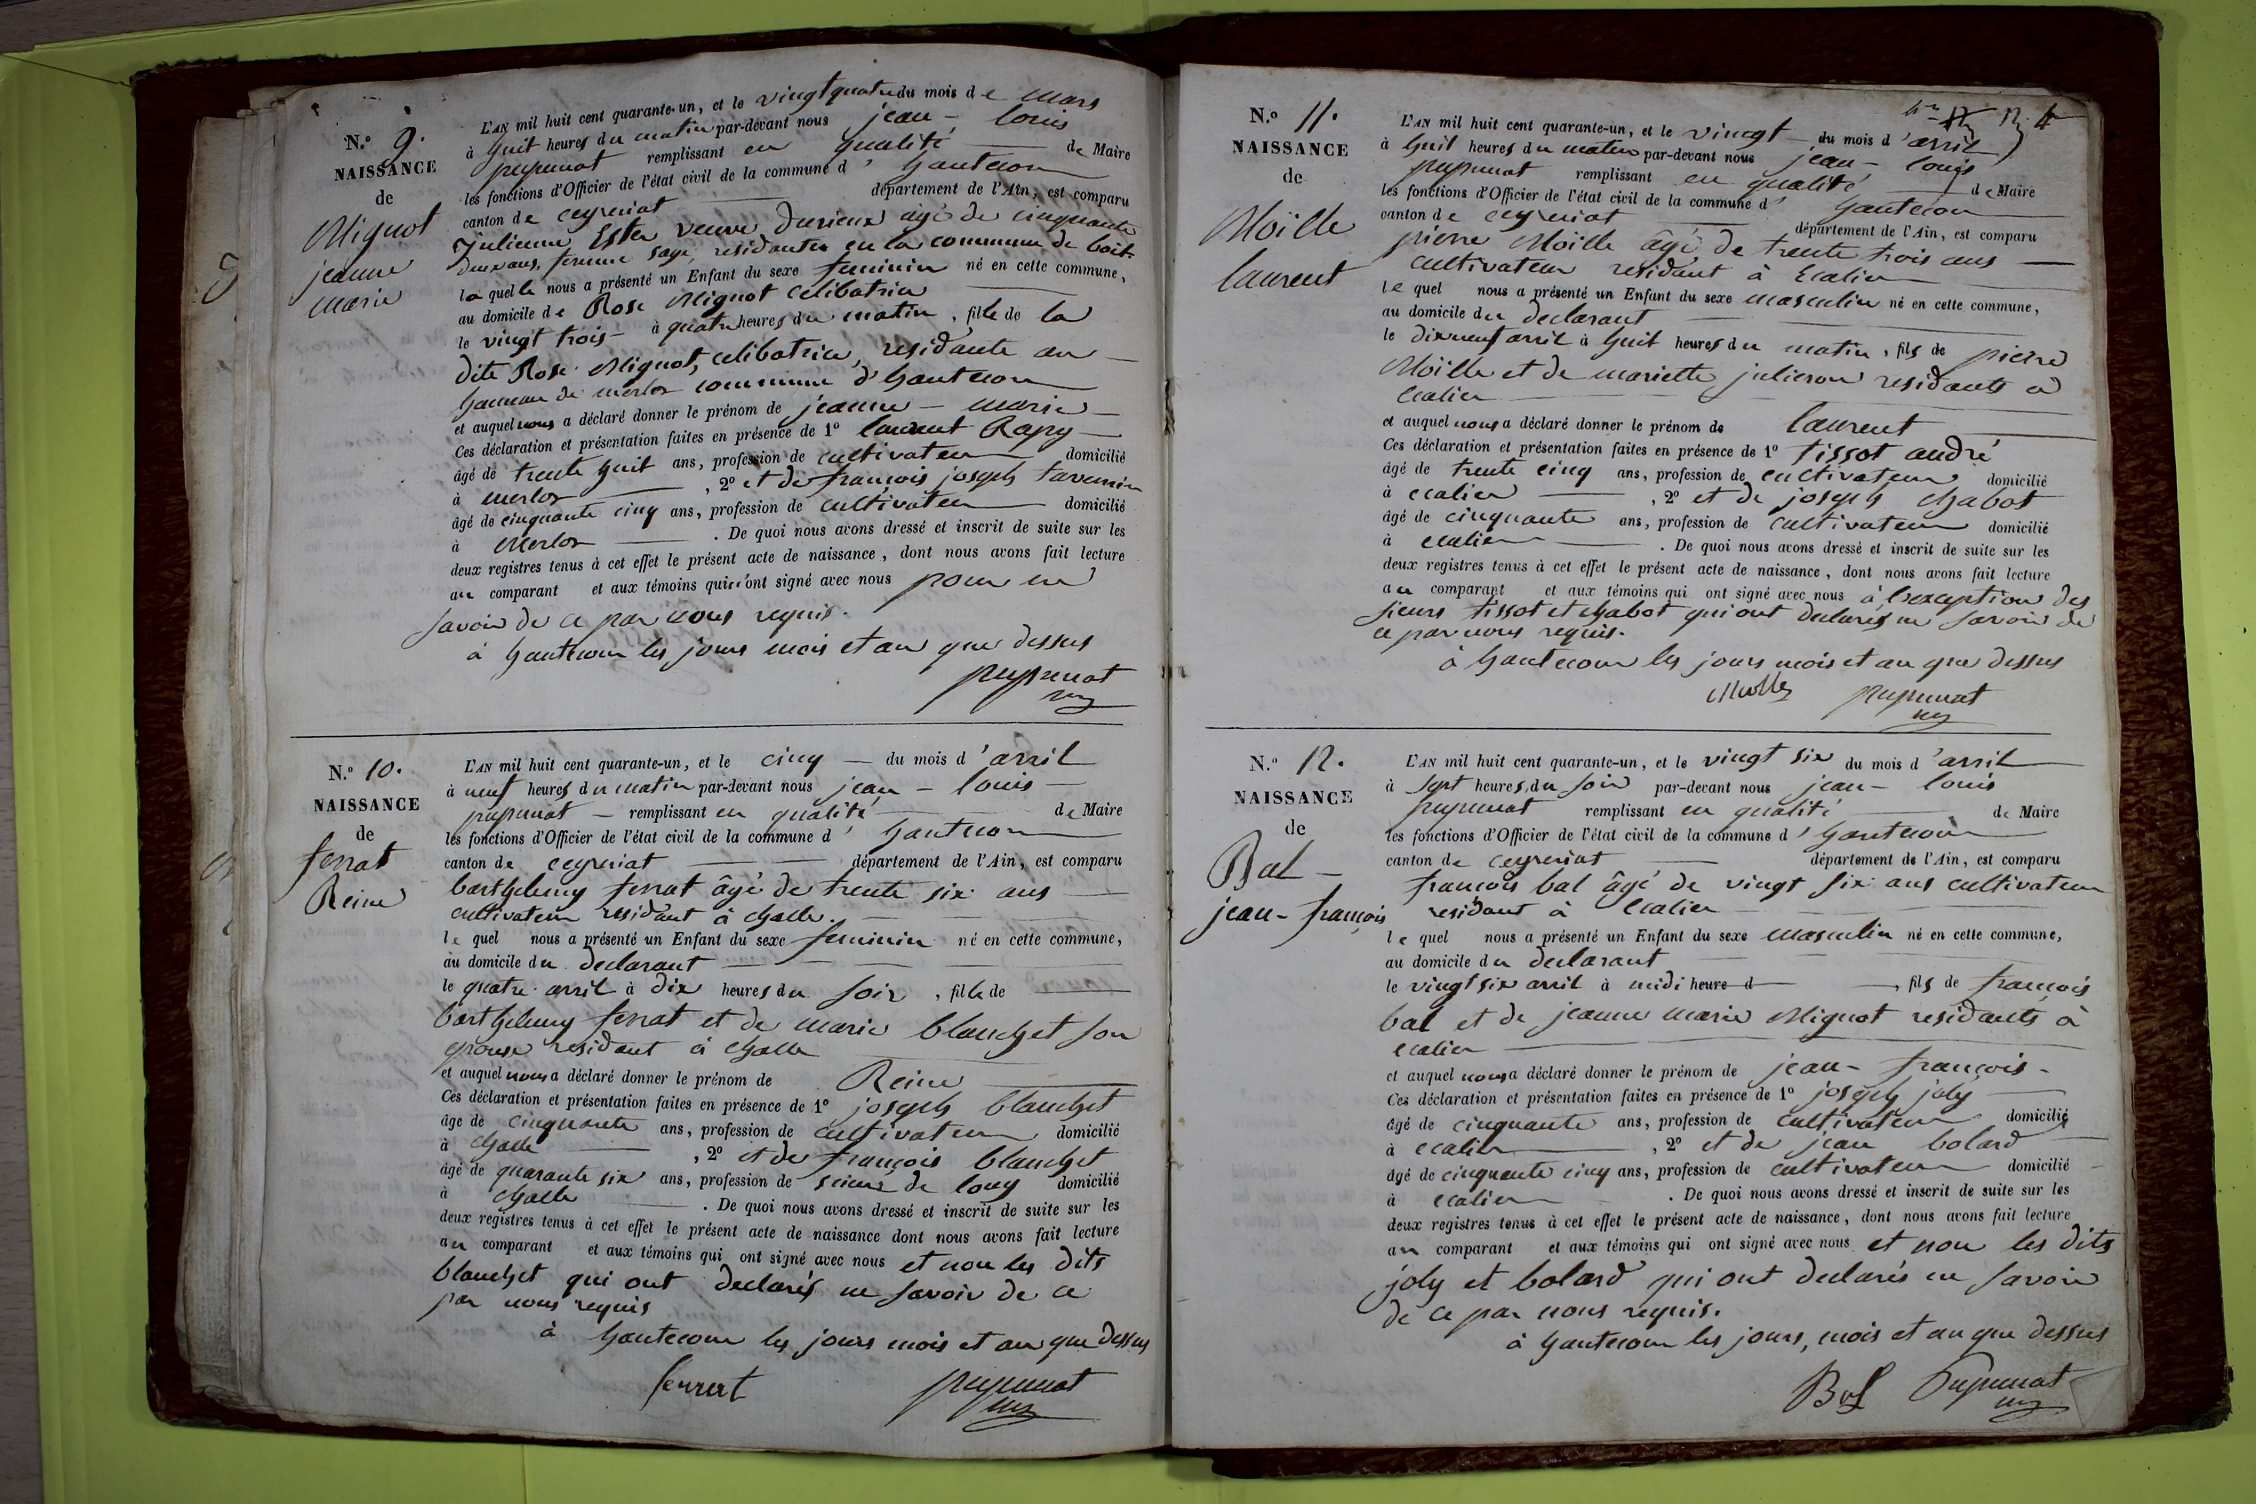 N.° 9.
NAISSANCE
de
Mignot
jeanne
marie
L'AN mil huit cent quarante-un, et le vingt quatre du mois de mars
à huit heures du matin par-devant nous jean - louis
pupunat remplissant en qualité de Maire
les fonctions d'Officier de l'état civil de la commune d' hautecour
canton de ceyzeriat département de l'Ain, est comparu
julienne veuve durieux âgé de cinquante
deux ans, femme sage, residante en la commune de
laquelle nous a présenté un Enfant du sexe feminin né en cette commune,
au domicile de Rose Mignot celibatrice
le vingt trois à quatre heures du matin, fille de la
dite Rose Mignot, celibatrice, residante au
hameau de merloz commune d'hautecour
et auquel nous a déclaré donner le prénom de jeanne - marie
Ces déclaration et présentation faites en présence de 1° laurent Rapy
âgé de trente huit ans, profession de cultivateur domicilié
à merloz , 2° et de françois joseph tavernier
âgé de cinquante cinq ans, profession de cultivateur domicilié
à Merloz . De quoi nous avons dressé et inscrit de suite sur les
deux registres tenus à cet effet le présent acte de naissance, dont nous avons fait lecture
au comparant et aux témoins qui n'ont signé avec nous pour ne
savoir de ce par nous requis.
à hautecour les jours mois et an que dessus
pupunat
N.° 10.
NAISSANCE
de
ferrat
Reine
L'AN mil huit cent quarante-un, et le cinq du mois d'avril
à neuf heures du matin par-devant nous jean - louis
pupunat remplissant en qualité de Maire
les fonctions d'Officier de l'état civil de la commune d' hautecour
canton de ceyzeriat département de l'Ain, est comparu
barthelemy ferrat âgé de trente six ans
cultivateur residant à challe.
lequel nous a présenté un Enfant du sexe feminin né en cette commune,
au domicile du declarant
le quatre avril à dix heures du soir, fille de
barthelemy ferrat et de marie blanchet son
epouse residant à challe
et auquel nous a déclaré donner le prénom de Reine
Ces déclaration et présentation faites en présence de 1° joseph blanchet
âgé de cinquante ans, profession de cultivateur domicilié
à challe , 2° et de françois blanchet
âgé de quarante six ans, profession de scieur de long domicilié
à challe . De quoi nous avons dressé et inscrit de suite sur les
deux registres tenus à cet effet le présent acte de naissance dont nous avons fait lecture
au comparant et aux témoins qui ont signé avec nous et non les dits
blanchet qui ont declarés ne savoir de ce
par nous requis
à hautecour les jours mois et an que dessus
ferrat pupunat
N.° 11.
NAISSANCE
de
Moïlle
laurent
L'AN mil huit cent quarante-un, et le vingt du mois d'avril
à huit heures du matin par-devant nous jean - louis
pupunat remplissant en qualité de Maire
les fonctions d'Officier de l'état civil de la commune d' hautecour
canton de ceyzeriat département de l'Ain, est comparu
pierre Moïlle âgé de trente trois ans
cultivateur residant à
lequel nous a présenté un Enfant du sexe masculin né en cette commune,
au domicile du declarant
le dixneuf avril à huit heures du matin, fils de pierre
Moïlle et de mariette julieron residants à
et auquel nous a déclaré donner le prénom de laurent
Ces déclaration et présentation faites en présence de 1° tissot andré
âgé de trente cinq ans, profession de cultivateur domicilié
à , 2° et de joseph chabot
âgé de cinquante ans, profession de cultivateur domicilié
à . De quoi nous avons dressé et inscrit de suite sur les
deux registres tenus à cet effet le présent acte de naissance, dont nous avons fait lecture
au comparant et aux témoins qui ont signé avec nous à l'exception des
sieurs tissot et chabot qui ont declarés ne savoir de
ce par nous requis.
à hautecour les jours mois et an que dessus
pupunat
N.° 12.
NAISSANCE
de
Bal
jean-françois
L'AN mil huit cent quarante-un, et le vingt six du mois d'avril
à sept heures du soir par-devant nous jean - louis
pupunat remplissant en qualité de Maire
les fonctions d'Officier de l'état civil de la commune d' hautecour
canton de ceyzeriat département de l'Ain, est comparu
françois bal âgé de vingt six ans cultivateur
residant à
lequel nous a présenté un Enfant du sexe masculin né en cette commune,
au domicile du declarant
le vingt six avril à midi heure d , fils de françois
bal et de jeanne marie Mignot residants à
et auquel nous a déclaré donner le prénom de jean - françois
Ces déclaration et présentation faites en présence de 1° joseph joly
âgé de cinquante ans, profession de cultivateur domicilié
à , 2° et de jean bolard
âgé de cinquante cinq ans, profession de cultivateur domicilié
à . De quoi nous avons dressé et inscrit de suite sur les
deux registres tenus à cet effet le présent acte de naissance, dont nous avons fait lecture
au comparant et aux témoins qui ont signé avec nous et non les dits
joly et bolard qui ont declarés ne savoir
de ce par nous requis.
à hautecour les jours, mois et an que dessus
Bal Pupunat